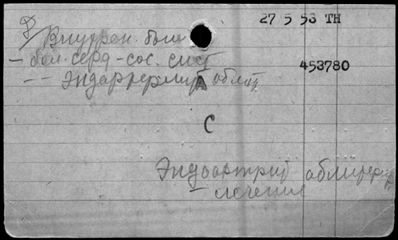 27 5 58 TH
Внутрен. бол
– бол. серд-сос. сист
453780
– – Эндартериит облит
С
Эндоартриит облитер
лечение